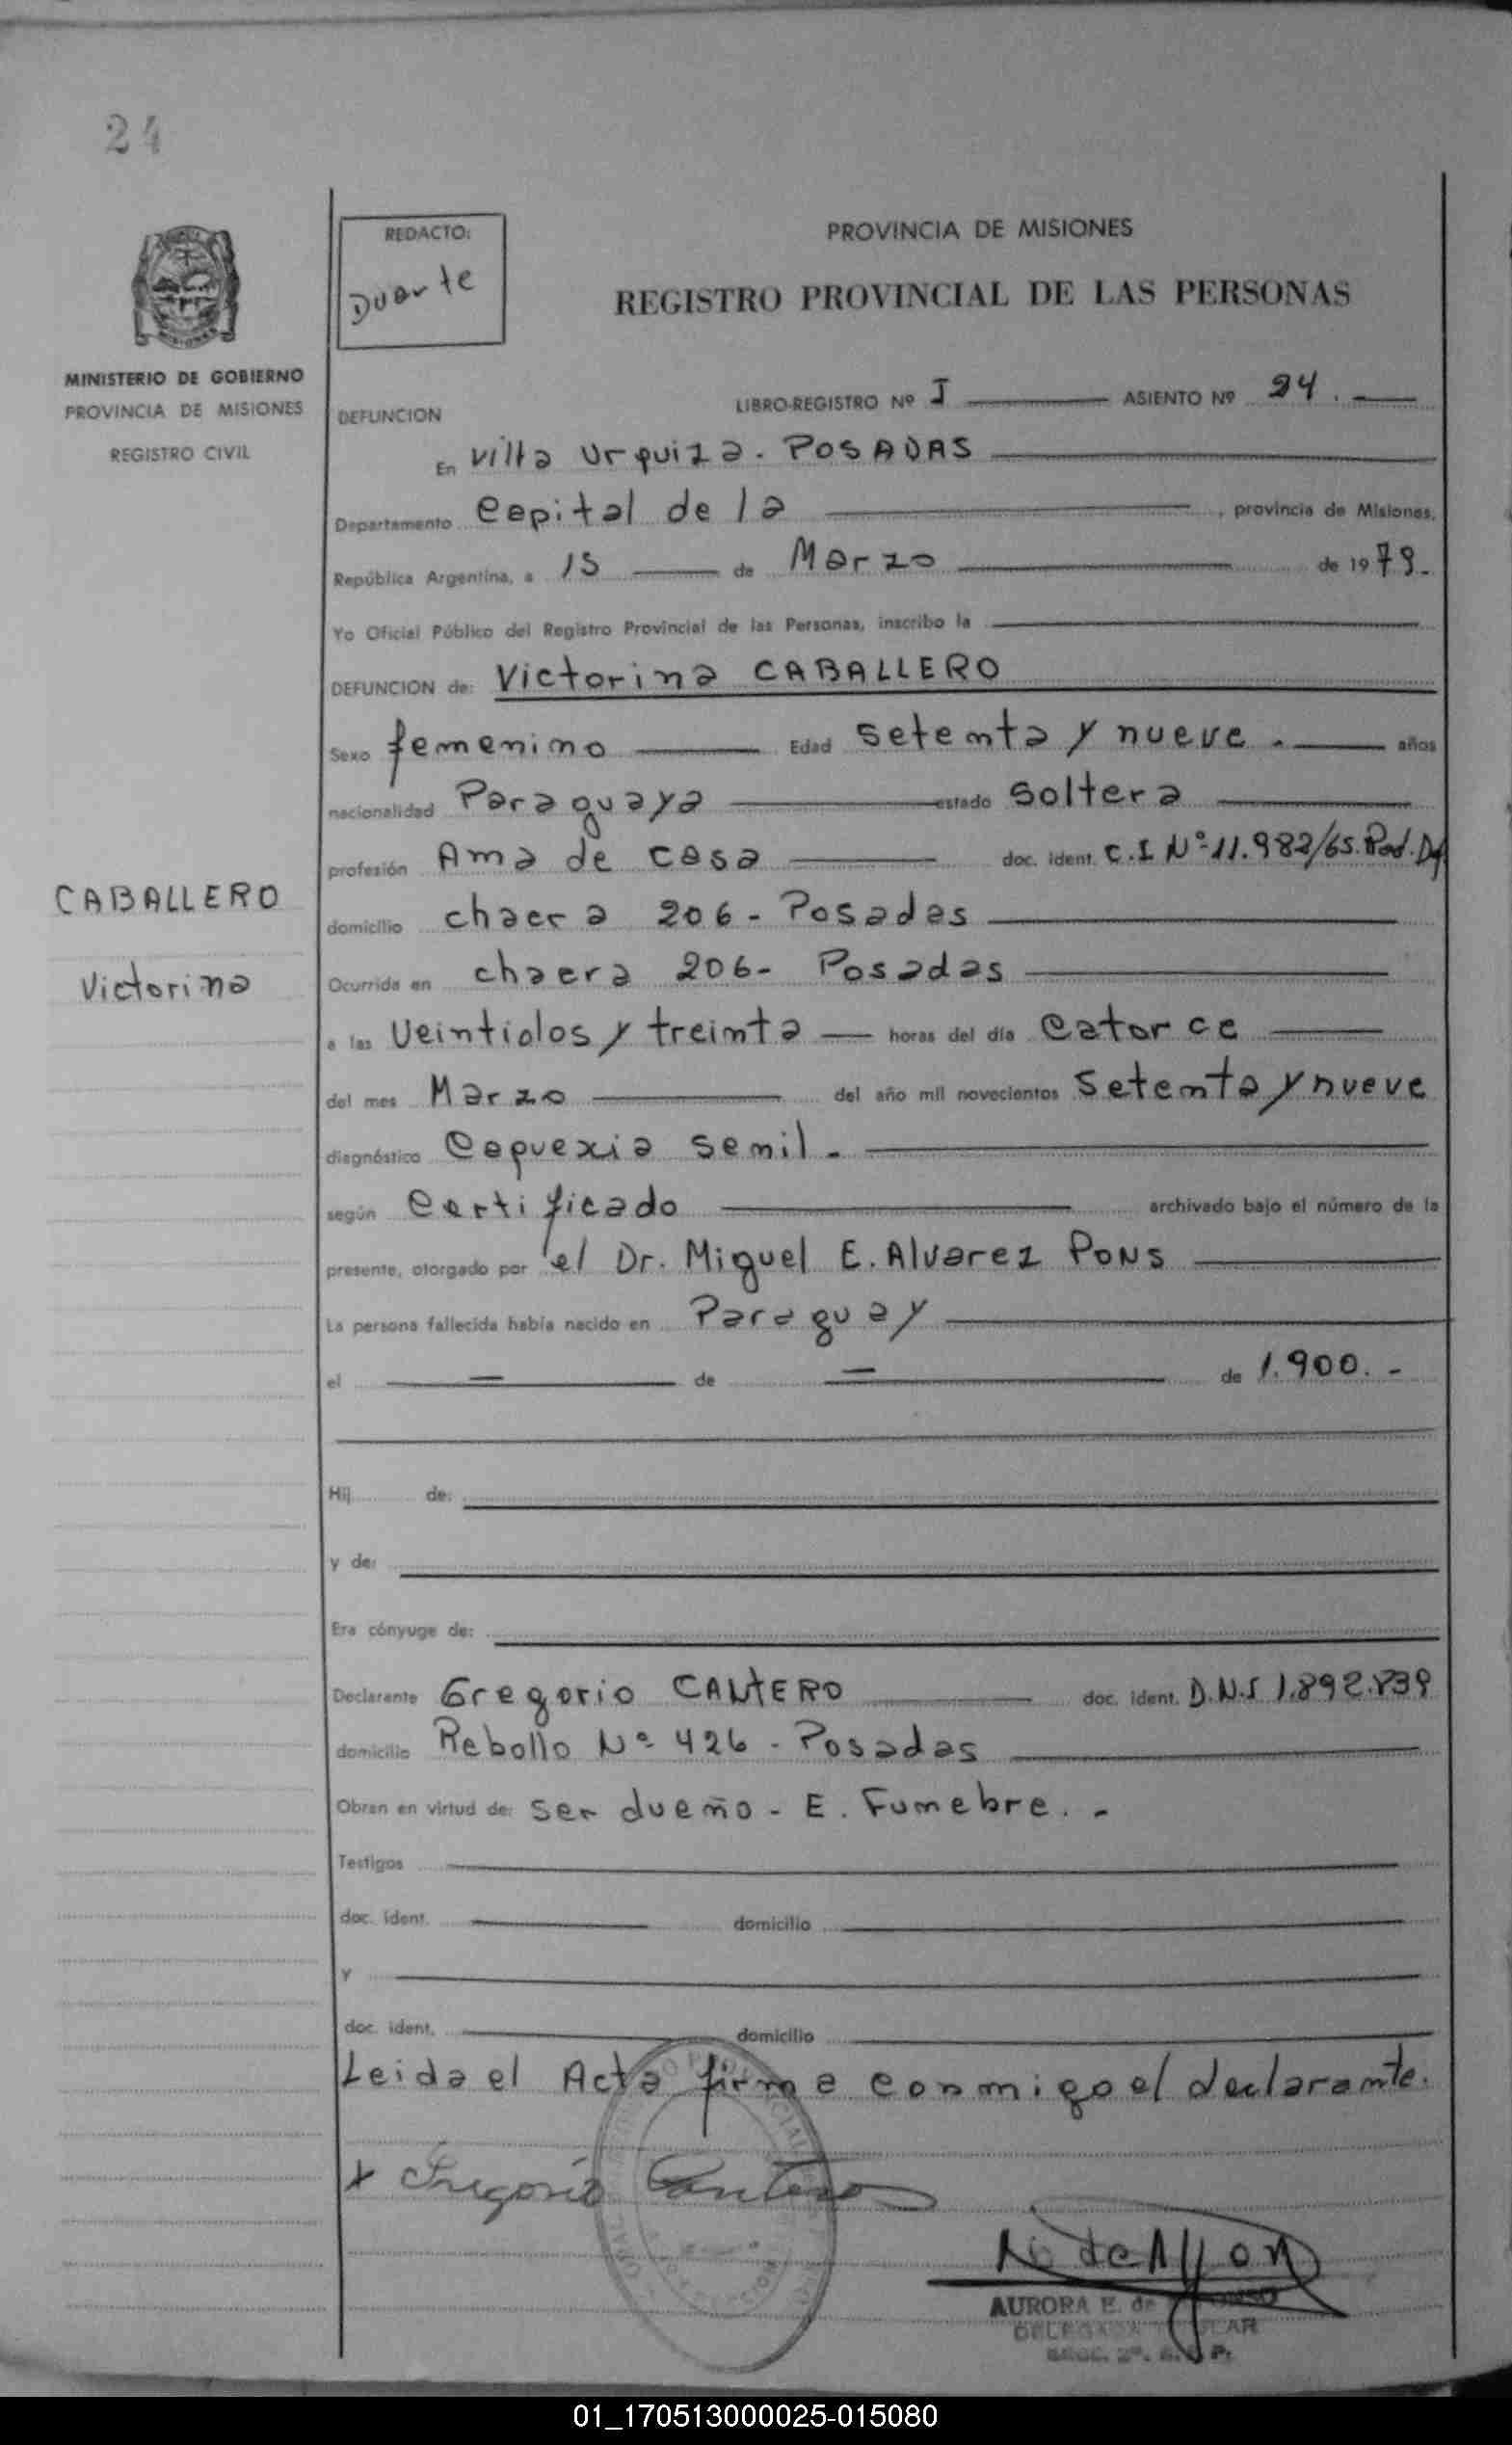 24
REDACTO:
Duarte
PROVINCIA DE MISIONES
REGISTRO PROVINCIAL DE LAS PERSONAS
MINISTERIO DE GOBIERNO
PROVINCIA DE MISIONES
REGISTRO CIVIL
DEFUNCION
LIBRO-REGISTRO Nº I ASIENTO Nº 24.
En Villa Urquiza. POSADAS
Departamento Capital de la , provincia de Misiones,
República Argentina, a 15 de Marzo de 1979.
Yo Oficial Público del Registro Provincial de las Personas, inscribo la
DEFUNCION de: Victorina CABALLERO
Sexo femenino Edad setenta y nueve. años
nacionalidad Paraguaya estado soltera
profesión Ama de casa doc. ident. C.I Nº 11.982/65. Pod.
CABALLERO
Victorina
domicilio chacra 206 - Posadas
Ocurrida en chacra 206- Posadas
a las Veintidos y treinta horas del día Catorce
del mes Marzo del año mil novecientos setenta y nueve
diagnóstico Caquexia senil.
según Certificado archivado bajo el número de la
presente, otorgado por el Dr. Miguel E. Alvarez PONS
La persona fallecida había nacido en Paraguay
el — de — de 1.900. -
Hij de:
y de:
Era cónyuge de:
Declarante Gregorio CANTERO doc. ident. D.N.I 1.892.839
domicilio Rebollo Nº 426 - Posadas
Obran en virtud de: ser dueño - E. Funebre. -
Testigos
doc. ident. domicilio
Y
doc. ident. domicilio
Leida el Acta firma conmigo el declarante.
x Gregorio Cantero
AURORA E. de
DELEGADA
SECC. 2ª.
01_170513000025-015080